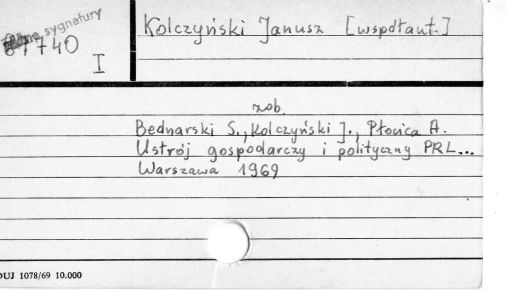 sygnatury
740
I
Kolczyński Janusz [współaut.]
zob.
Bednarski S., Kolczyński J., Płocica A.
Ustrój gospodarczy i polityczny PRL...
Warszawa 1969
DUJ 1078/69 10.000